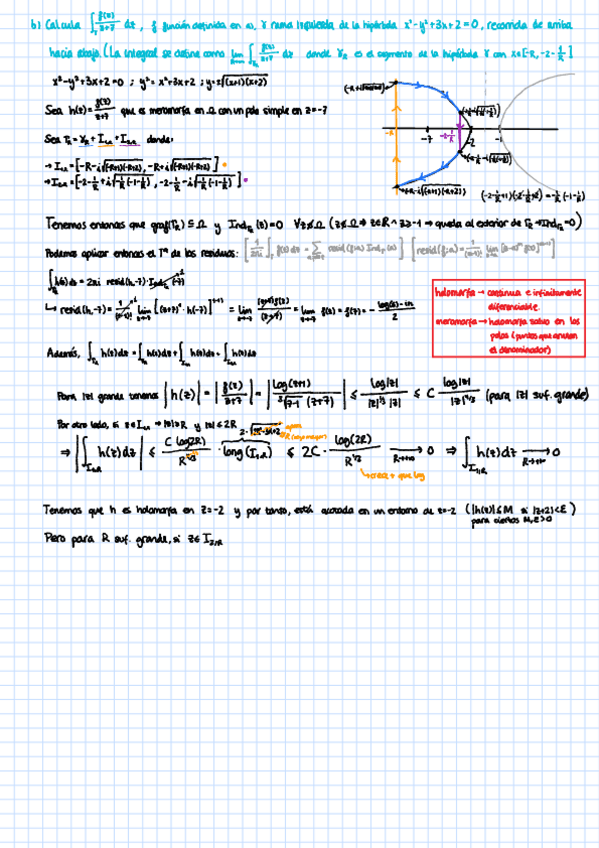 b) Calcula ∫_γ f(z)/(z+7) dz, f función definida en a), γ rama izquierda de la hipérbola x²-y²+3x+2=0, recorrida de arriba
hacia abajo. (La integral se define como lim ∫ f(z)/(z+7) dz donde γ_R es el segmento de la hipérbola γ con x∈[-R, -2-1/R]
x²-y²+3x+2=0 ; y²= x²+3x+2 ; y=±√((x+1)(x+2))
Sea h(z)= f(z)/(z+7) que es meromorfa en Ω con un polo simple en z=-7
Sea Γ_R = γ_R + I_1,R + I_2,R donde:
→ I_1,R = [-R-i√((-R+1)(-R+2)), -R+i√((-R+1)(-R+2))]
→ I_2,R = [-2-1/R+i√(-1/R(-1-1/R)), -2-1/R-i√(-1/R(-1-1/R))]
-R
-7
-2-1/R
-2
-1
(-2-1/R+1)(-2-1/R+2)=-1/R(-1-1/R)
Tenemos entonces que graf(Γ_R) ⊆ Ω y Ind_Γ_R(z)=0 ∀z∉Ω (z∉Ω ⇒ z∈R ∧ z≥-1 → queda al exterior de Γ_R ⇒ Ind=0)
Podemos aplicar entonces el Tª de los residuos:
∫_Γ_R h(z)dz = 2πi resid(h,-7)·Ind_Γ_R(-7)
↳ resid(h,-7) = lim [(z+7)·h(-7)] = lim (z+7)f(z)/(z+7) = lim f(z) = f(-7) = - (log(6)-iπ)/2
holomorfa → continua e infinitamente
diferenciable
meromorfa → holomorfa salvo en los
polos (puntos que anulan
el denominador)
Además, ∫_Γ_R h(z)dz = ∫_γ_R h(z)dz + ∫ h(z)dz + ∫ h(z)dz
Para |z| grande tenemos |h(z)| = |f(z)/(z+7)| = |log(z+1)/(∛(z-1) (z+7))| ≤ log|z|/(|z|^1/3 |z|) ≤ C log|z|/|z|^4/3 (para |z| suf. grande)
Por otro lado, si z∈I_1,R ⇒ |z|≥R y |z|≤2R
⇒ |∫_I_1,R h(z)dz| ≤ C log(2R)/R^4/3 · long(I_1,R) ≤ 2C · log(2R)/R^1/3 → 0 ⇒ ∫_I_1,R h(z)dz → 0
R→+∞
↳crece + que log
Tenemos que h es holomorfa en z=-2 y por tanto, está acotada en un entorno de z=-2 (|h(z)|≤M si |z+2|<ε)
para ciertos M,ε>0
Pero para R suf. grande, si z∈ I_2,R